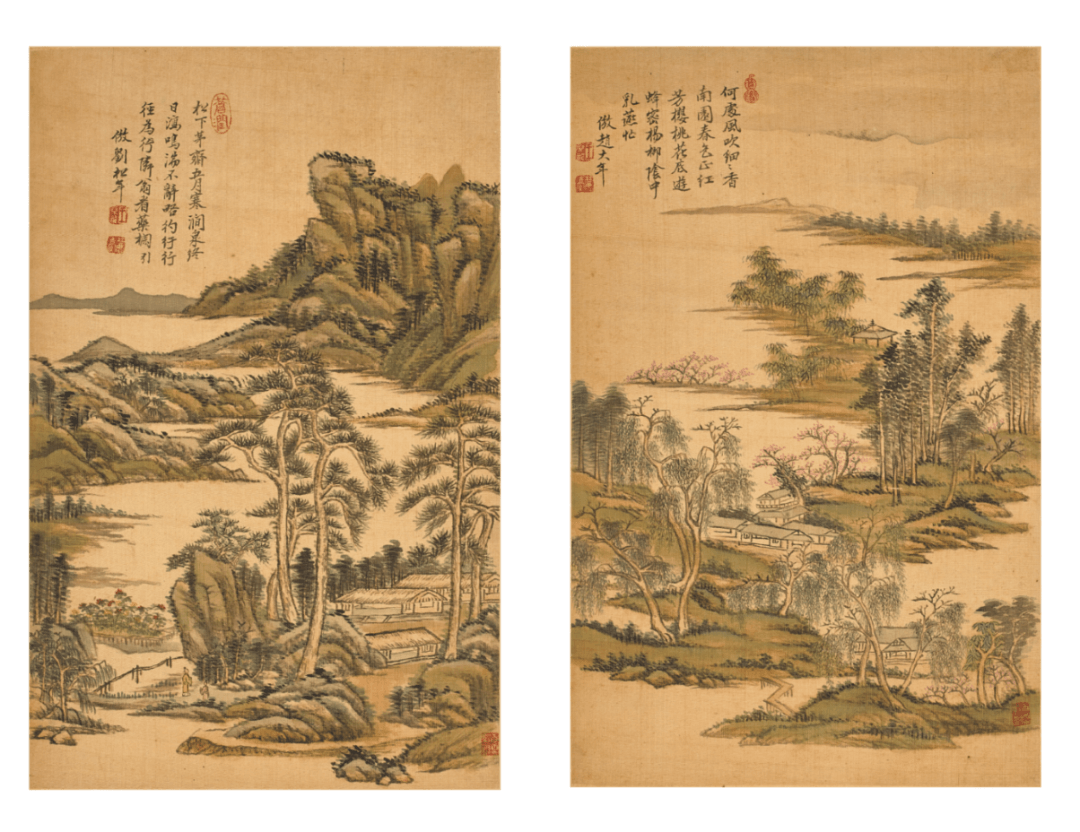 松下茅齋五月寒澗泉終
日瀉鳴湍不辭略彴行行
徑為行隣翁看藥欄引
倣劉松年
何處風吹細〻香
南園春色正紅
芳櫻桃花底遊
蜂密楊柳陰中
乳燕忙
倣趙大年